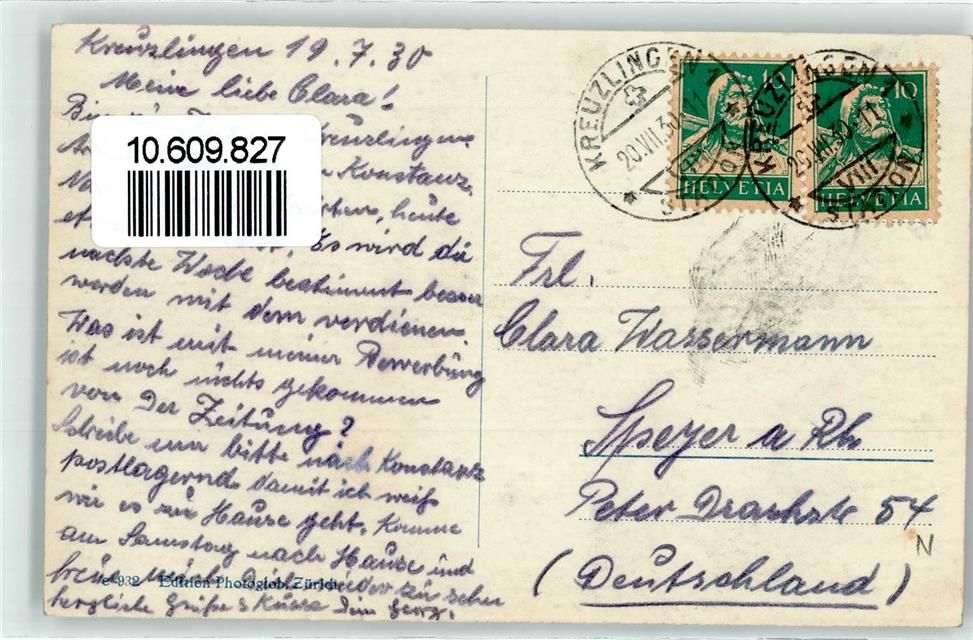 Kreuzlingen 19.7.30
Meine liebe Clara!
Bin
Kreuzlingen
10.609.827
Konstanz,
heute
Es wird die
nächste Woche bestimmt besser
werden mit dem verdienen.
Was ist mit meiner Bewerbung
ist noch nichts gekommen
von Der Zeitung?
Schreibe mir bitte nach Konstanz
postlagernd damit ich weiß
wie es zu Hause geht. Komme
am Samstag nach Hause und
freue mich Dich wieder zu sehen
herzliche Grüße & Küsse Dein Georg.
e 932 Edition Photoglob, Zürich
KREUZLINGEN 1
20.VII.30
10
HELVETIA
KREUZLINGEN 1
10
HELVETIA
Frl.
Clara Wassermann
Speyer a Rh
Peter Drachstr 54
N
(Deutschland)